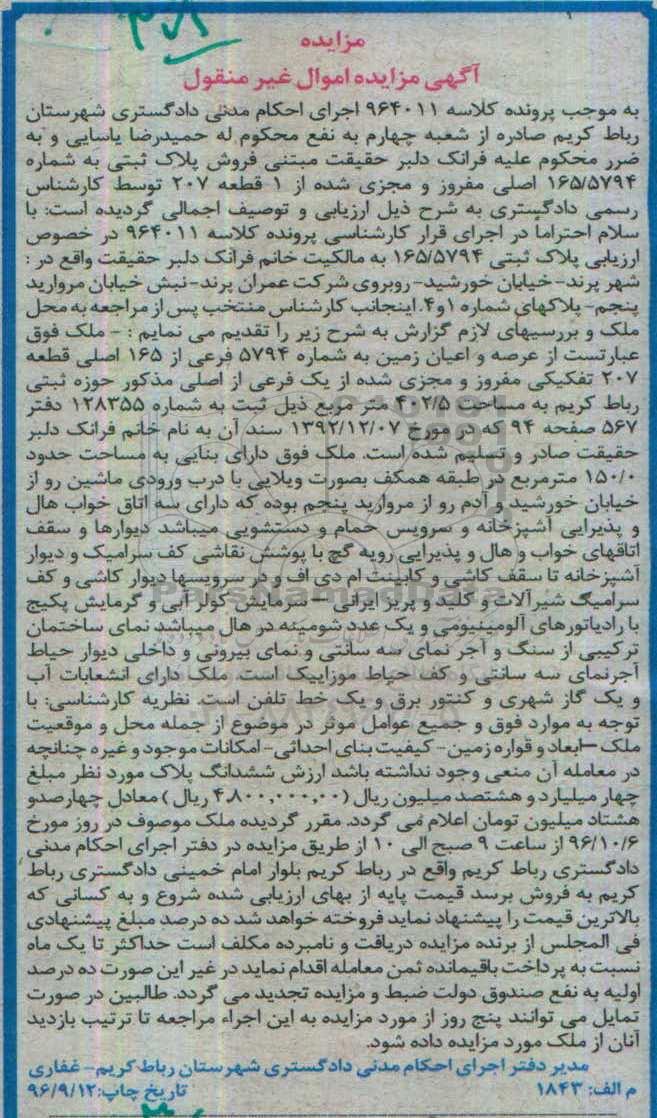 مزایده
آگهی مزایده اموال غیر منقول
به موجب پرونده کلاسه ۹۶۴۰۱۱ اجرای احکام مدنی دادگستری شهرستان
رباط کریم صادره از شعبه چهارم به نفع محکوم له حمیدرضا یاسایی و به
ضرر محکوم علیه فرانک دلبر حقیقت مبتنی فروش پلاک ثبتی به شماره
۱۶۵/۵۷۹۴ اصلی مفروز و مجزی شده از ۱ قطعه ۲۰۷ توسط کارشناس
رسمی دادگستری به شرح ذیل ارزیابی و توصیف اجمالی گردیده است: با
سلام احتراما در اجرای قرار کارشناسی پرونده کلاسه ۹۶۴۰۱۱ در خصوص
ارزیابی پلاک ثبتی ۱۶۵/۵۷۹۴ به مالکیت خانم فرانک دلبر حقیقت واقع در :
شهر پرند- خیابان خورشید- روبروی شرکت عمران پرند- نبش خیابان مروارید
پنجم- پلاکهای شماره ۱و۴. اینجانب کارشناس منتخب پس از مراجعه به محل
ملک و بررسیهای لازم گزارش به شرح زیر را تقدیم می نمایم : - ملک فوق
عبارتست از عرصه و اعیان زمین به شماره ۵۷۹۴ فرعی از ۱۶۵ اصلی قطعه
۲۰۷ تفکیکی مفروز و مجزی شده از یک فرعی از اصلی مذکور حوزه ثبتی
رباط کریم به مساحت ۴۰۲/۵ متر مربع ذیل ثبت به شماره ۱۲۸۳۵۵ دفتر
۵۶۷ صفحه ۹۴ که در مورخ ۱۳۹۲/۱۲/۰۷ سند آن به نام خانم فرانک دلبر
حقیقت صادر و تسلیم شده است. ملک فوق دارای بنایی به مساحت حدود
۱۵۰/۰ مترمربع در طبقه همکف بصورت ویلایی با درب ورودی ماشین رو از
خیابان خورشید و آدم رو از مروارید پنجم بوده که دارای سه اتاق خواب هال
و پذیرایی آشپزخانه و سرویس حمام و دستشویی میباشد دیوارها و سقف
اتاقهای خواب و هال و پذیرایی رویه گچ با پوشش نقاشی کف سرامیک و دیوار
آشپزخانه تا سقف کاشی و کابینت ام دی اف و در سرویسها دیوار کاشی و کف
سرامیک شیرآلات و کلید و پریز ایرانی – سرمایش کولر آبی و گرمایش پکیج
با رادیاتورهای آلومینیومی و یک عدد شومینه در هال میباشد نمای ساختمان
ترکیبی از سنگ و آجر نمای سه سانتی و نمای بیرونی و داخلی دیوار حیاط
آجرنمای سه سانتی و کف حیاط موزاییک است. ملک دارای انشعابات آب
و یک گاز شهری و کنتور برق و یک خط تلفن است. نظریه کارشناسی: با
توجه به موارد فوق و جمیع عوامل موثر در موضوع از جمله محل و موقعیت
ملک –ابعاد و قواره زمین- کیفیت بنای احداثی- امکانات موجود و غیره چنانچه
در معامله آن منعی وجود نداشته باشد ارزش ششدانگ پلاک مورد نظر مبلغ
چهار میلیارد و هشتصد میلیون ریال (۴,۸۰۰,۰۰۰,۰۰۰ ریال ) معادل چهارصدو
هشتاد میلیون تومان اعلام می گردد. مقرر گردیده ملک موصوف در روز مورخ
۹۶/۱۰/۶ از ساعت ۹ صبح الی ۱۰ از طریق مزایده در دفتر اجرای احکام مدنی
دادگستری رباط کریم واقع در رباط کریم بلوار امام خمینی دادگستری رباط
کریم به فروش برسد قیمت پایه از بهای ارزیابی شده شروع و به کسانی که
بالاترین قیمت را پیشنهاد نماید فروخته خواهد شد ده درصد مبلغ پیشنهادی
فی المجلس از برنده مزایده دریافت و نامبرده مکلف است حداکثر تا یک ماه
نسبت به پرداخت باقیمانده ثمن معامله اقدام نماید در غیر این صورت ده درصد
اولیه به نفع صندوق دولت ضبط و مزایده تجدید می گردد. طالبین در صورت
تمایل می توانند پنج روز از مورد مزایده به این اجراء مراجعه تا ترتیب بازدید
آنان از ملک مورد مزایده داده شود.
مدیر دفتر اجرای احکام مدنی دادگستری شهرستان رباط کریم- غفاری
م الف: ۱۸۴۳ تاریخ چاپ:۹۶/۹/۱۲
ParsNamadData